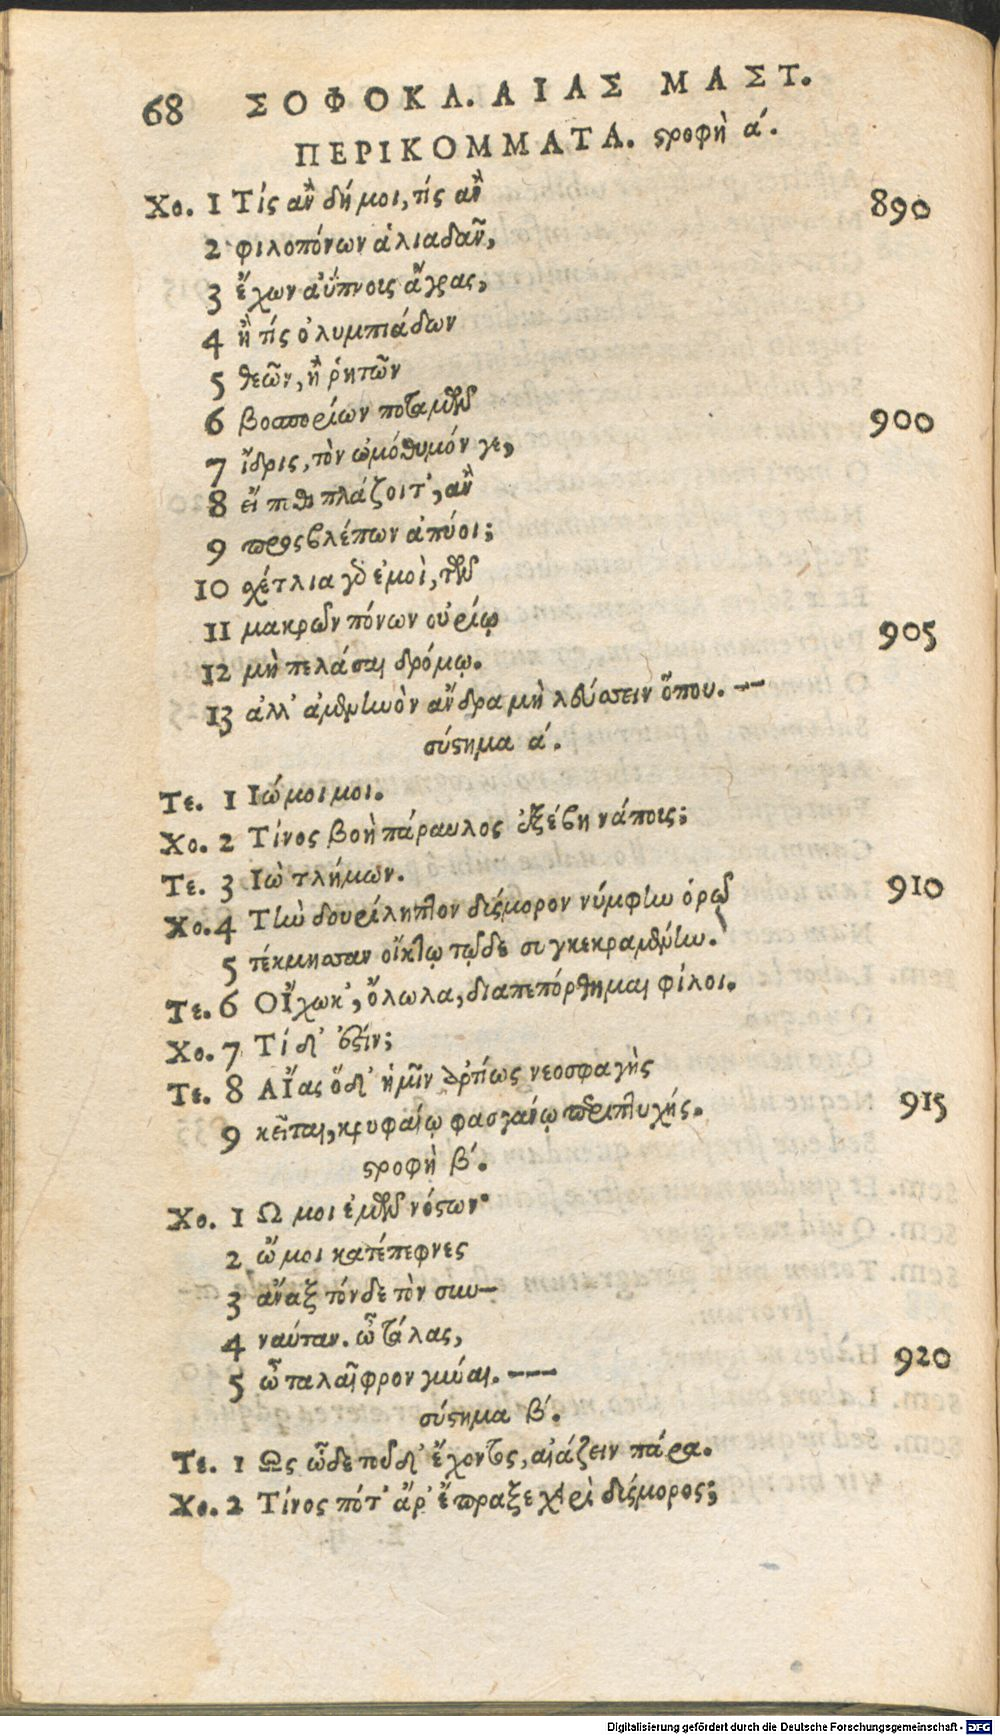 68 ΣΟΦΟΚΛ. ΑΙΑΣ ΜΑΣΤ.
ΠΕΡΙΚΟΜΜΑΤΑ. ϛροφὴ ά.
Χο. 1 Τίς ἂν δή μοι, τίς ἂν 890
2 φιλοπόνων ἁλιαδᾶν,
3 ἔχων ἀΰπνοις ἄγρας,
4 ἢ τίς ὀλυμπιάδων
5 θεῶν, ἢ ῥητῶν
6 βοασορίων ποταμῶν 900
7 ἴδρις, τὸν ὠμόθυμόν γε,
8 εἴ πιθι πλάζοιτ', ἂν
9 προςβλέπων ἀπύοι;
10 σχέτλια γὸ ἐμοὶ, τῶν
11 μακρῶν πόνων οὐρίῳ 905
12 μὴ πελάσαι δρόμῳ.
13 ἀλλ' ἀμενηνὸν ἄνδρα μὴ λεύσσειν ὅπου. --
σύϛημα ά.
Τε. 1 Ιώ μοι μοι.
Χο. 2 Τίνος βοὴ πάραυλος ἐξέβη νάποις;
Τε. 3 Ιὼ τλήμων. 910
Χο. 4 Τὴν δουρίληπτον δύςμορον νύμφην ὁρῶ
5 τέκμησσαν οἴκτῳ τῷδε συγκεκραμένην.
Τε. 6 ΟἼχωκ', ὄλωλα, διαπεπόρθημαι φίλοι.
Χο. 7 Τί δ' ἐϛίν;
Τε. 8 ΑἼας ὅδ' ἡμῖν ἀρτίως νεοσφαγὴς
9 κεῖται, κρυφαίῳ φασγάνῳ περιπτυχής. 915
ϛροφὴ β΄.
Χο. 1 Ω μοι ἐμῶν νόϛων·
2 ὤ μοι κατέπεφνες
3 ἄναξ τόνδε τὸν συν-
4 ναύταν. ὦ τάλας,
5 ὦ ταλαῖφρον γύναι. --- 920
σύϛημα β΄.
Τε. 1 Ως ὧδε τοῦδ' ἔχοντος, αἰάζειν πάρα.
Χο. 2 Τίνος πότ' ἄρ' ἔπραξε χειρὶ δύςμορος;
Digitalisierung gefördert durch die Deutsche Forschungsgemeinschaft - DFG